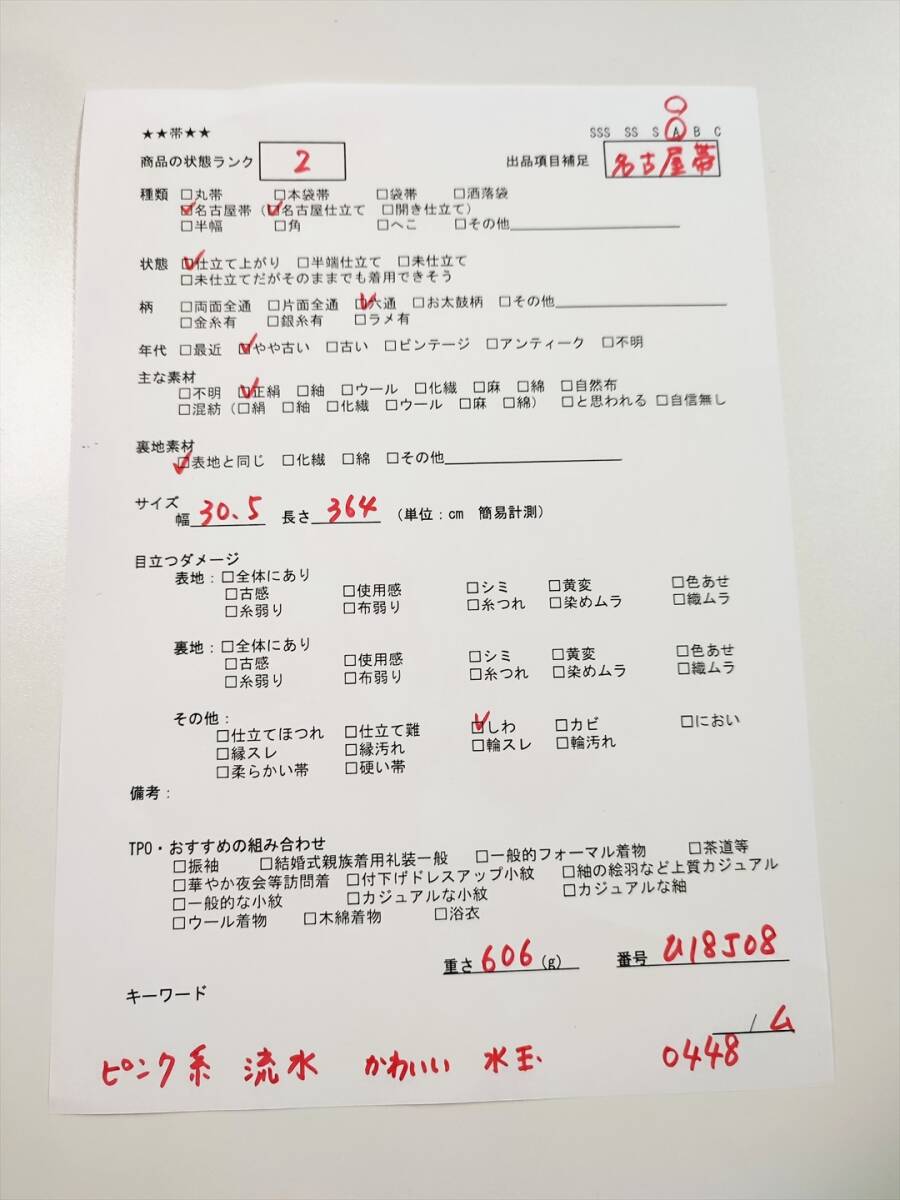 ★★帯★★ SSS SS S A B C
商品の状態ランク 2 出品項目補足 名古屋帯
種類 □丸帯 □本袋帯 □袋帯 □洒落袋
☑名古屋帯（☑名古屋仕立て □開き仕立て）
□半幅 □角 □へこ □その他
状態 ☑仕立て上がり □半端仕立て □未仕立て
□未仕立てだがそのままでも着用できそう
柄 □両面全通 □片面全通 ☑六通 □お太鼓柄 □その他
□金糸有 □銀糸有 □ラメ有
年代 □最近 ☑やや古い □古い □ビンテージ □アンティーク □不明
主な素材
□不明 ☑正絹 □紬 □ウール □化繊 □麻 □綿 □自然布
□混紡（□絹 □紬 □化繊 □ウール □麻 □綿） □と思われる □自信無し
裏地素材
☑表地と同じ □化繊 □綿 □その他
サイズ
幅 30.5 長さ 364 （単位：cm 簡易計測）
目立つダメージ
表地：□全体にあり
□古感 □使用感 □シミ □黄変 □色あせ
□糸弱り □布弱り □糸つれ □染めムラ □織ムラ
裏地：□全体にあり
□古感 □使用感 □シミ □黄変 □色あせ
□糸弱り □布弱り □糸つれ □染めムラ □織ムラ
その他：
□仕立てほつれ □仕立て難 ☑しわ □カビ □におい
□縁スレ □縁汚れ □輪スレ □輪汚れ
□柔らかい帯 □硬い帯
備考：
TPO・おすすめの組み合わせ
□振袖 □結婚式親族着用礼装一般 □一般的フォーマル着物 □茶道等
□華やか夜会等訪問着 □付下げドレスアップ小紋 □紬の絵羽など上質カジュアル
□一般的な小紋 □カジュアルな小紋 □カジュアルな紬
□ウール着物 □木綿着物 □浴衣
重さ 606 (g) 番号 U18J08
キーワード
/ ム
ピンク系 流水 かわいい 水玉 0448